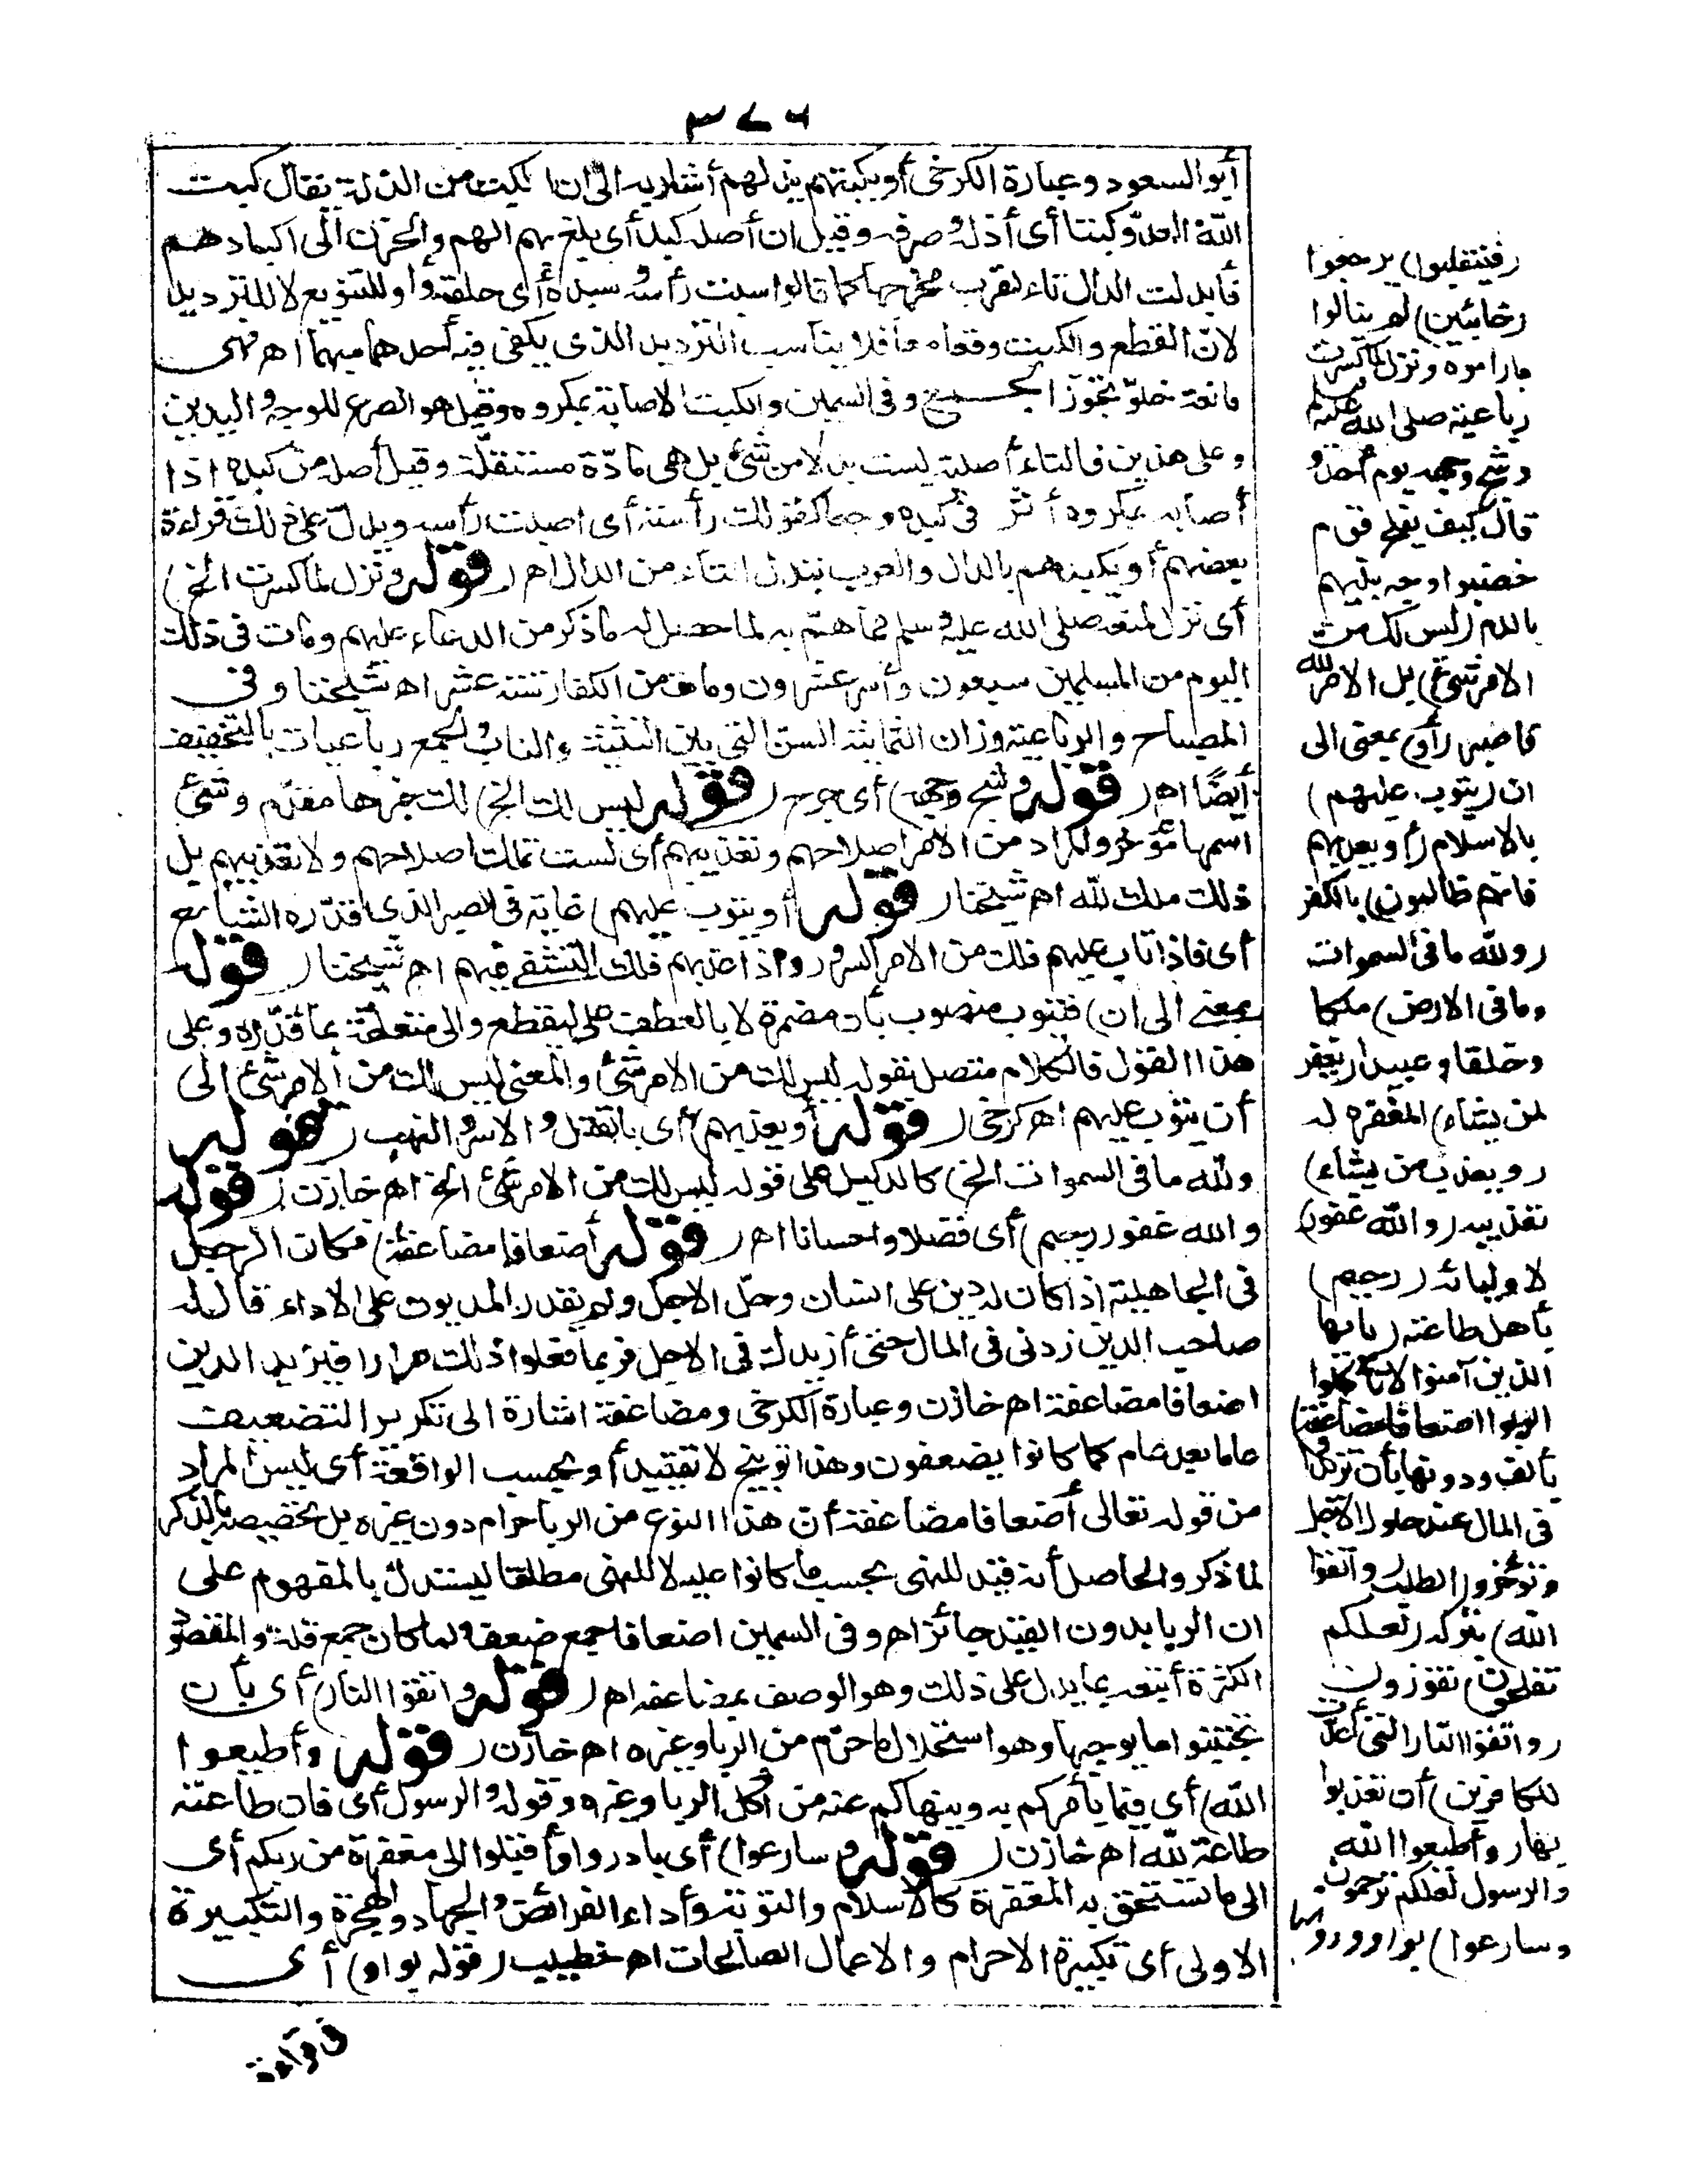 ٣٧٦
أبو السعود وعبارة الكرخى أو يكبتهم يذلهم أشار به الى ان يكبت من الذلة يقال كبت
الله العدو كبتا أى أذله وصرفه وقيل ان أصله كبد أى بلغ بهم الهم والحزن الى اكبادهم
فأبدلت الدال تاء لقرب مخرجها كما قالوا سبت رأسه وسبده أى حلقه وأو للتنويع لا للترديد
لان القطع والكبت وقعا معا فلا يناسب الترديد الذى يكفى فيه أحدهما مبهما اه فهى
مانعة خلو تجوز الجمع وفى السمين والكبت الاصابة بمكروه وقيل هو الصرع للوجه واليدين
وعلى هذين فالتاء أصلية ليست بدلا من شئ بل هى مادة مستقلة وقيل أصله من كبده اذا
أصابه بمكروه أثر فى كبده وجعا كقولك رأسته أى اصبت رأسه ويدل على ذلك قراءة
بعضهم أو يكبدهم بالدال والعرب تبدل التاء من الدال اه (قوله ونزل لما كسرت الخ)
أى نزل لمنعه صلى الله عليه وسلم مما هم به لما حصل له ما ذكر من الدعاء عليهم ومات فى ذلك
اليوم من المسلمين سبعون وأسر عشرون ومات من الكفار ستة عشر اه شيخنا وفى
المصباح والرباعية وزان الثمانية السن التى بين الثنية والناب والجمع رباعيات بالتخفيف
أيضا اه (قوله وشج وجهه) أى جرح (قوله ليس لك الخ) لك خبرها مقدم وشئ
اسمها مؤخر والمراد من الامر اصلاحهم وتعذيبهم أى لست تملك اصلاحهم ولا تعذيبهم بل
ذلك ملك لله اه شيخنا (قوله أو يتوب عليهم) غاية فى الصبر الذى قدره الشارح
أى فاذا تاب عليهم فلك من الامر السرور واذا عذبهم فلك التشفى فيهم اه شيخنا (قوله
بمعنى الى ان) فيتوب منصوب بأن مضمرة لا بالعطف على ليقطع والى متعلقة بما قدره وعلى
هذا القول فالكلام متصل بقوله ليس لك من الامر شئ والمعنى ليس لك من الامر شئ الى
أن يتوب عليهم اه كرخى (قوله أو يعذبهم) أى بالقتل والاسر والنهب (قوله
ولله ما فى السموات الخ) كالدليل على قوله ليس لك من الامر شئ الخ اه خازن (قوله
والله غفور رحيم) أى فضلا واحسانا اه (قوله أضعافا مضاعفة) فكان الرجل
فى الجاهلية اذا كان له دين على انسان وحل الاجل ولم يقدر المديون على الاداء قال له
صاحب الدين زدنى فى المال حتى أزيدك فى الاجل فربما فعلوا ذلك مرارا فيزيد الدين
اضعافا مضاعفة اه خازن وعبارة الكرخى ومضاعفة اشارة الى تكرير التضعيف
عاما بعد عام كما كانوا يضعفون وهذا توبيخ لا تقييد أو بحسب الواقعة أى ليس المراد
من قوله تعالى أضعافا مضاعفة أن هذا النوع من الربا حرام دون غيره بل تخصيصه بالذكر
لما ذكر والحاصل أنه قيد للنهى بحسب ما كانوا عليه لا للنهى مطلقا ليستدل بالمفهوم على
ان الربا بدون القيد جائز اه وفى السمين اضعافا جمع ضعف ولما كان جمع قلة والمقصود
الكثرة أتبعه بما يدل على ذلك وهو الوصف بمضاعفه اه (قوله واتقوا النار) أى بأن
تجتنبوا ما يوجبها وهو استحلال ما حرم من الربا وغيره اه خازن (قوله وأطيعوا
الله) أى فيما يأمركم به وينهاكم عنه من أكل الربا وغيره وقوله والرسول أى فان طاعته
طاعة لله اه خازن (قوله وسارعوا) أى بادروا وأقبلوا الى مغفرة من ربكم أى
الى ما تستحق به المغفرة كالاسلام والتوبة وأداء الفرائض والجهاد والهجرة والتكبيرة
الاولى أى تكبيرة الاحرام والاعمال الصالحات اه خطيب (قوله بواو) أى
(فينقلبوا) يرجعوا
(خائبين) لم ينالوا
ما راموه ونزل لما كسرت
رباعيته صلى الله عليه وسلم
وشج وجهه يوم أحد و
قال كيف يفلح قوم
خضبوا وجه نبيهم
بالدم (ليس لك من
الامر شئ) بل الامر لله
فاصبر (أو) بمعنى الى
ان (يتوب عليهم)
بالاسلام (أو يعذبهم
فانهم ظالمون) بالكفر
(ولله ما فى السموات
وما فى الارض) ملكا
وخلقا وعبيدا (يغفر
لمن يشاء) المغفرة له
(ويعذب من يشاء)
تعذيبه (والله غفور)
لاوليائه (رحيم)
بأهل طاعته (يا أيها
الذين آمنوا لا تأكلوا
الربوا اضعافا مضاعفة)
بألف ودونها بأن تزيدوا
فى المال عند حلول الاجل
وتؤخروا الطلب (واتقوا
الله) بتركه (لعلكم
تفلحون) تفوزون
(واتقوا النار التى أعدت
للكافرين) أن تعذبوا
بها (وأطيعوا الله
والرسول لعلكم ترحمون
وسارعوا) بواو ودونها
قراءة